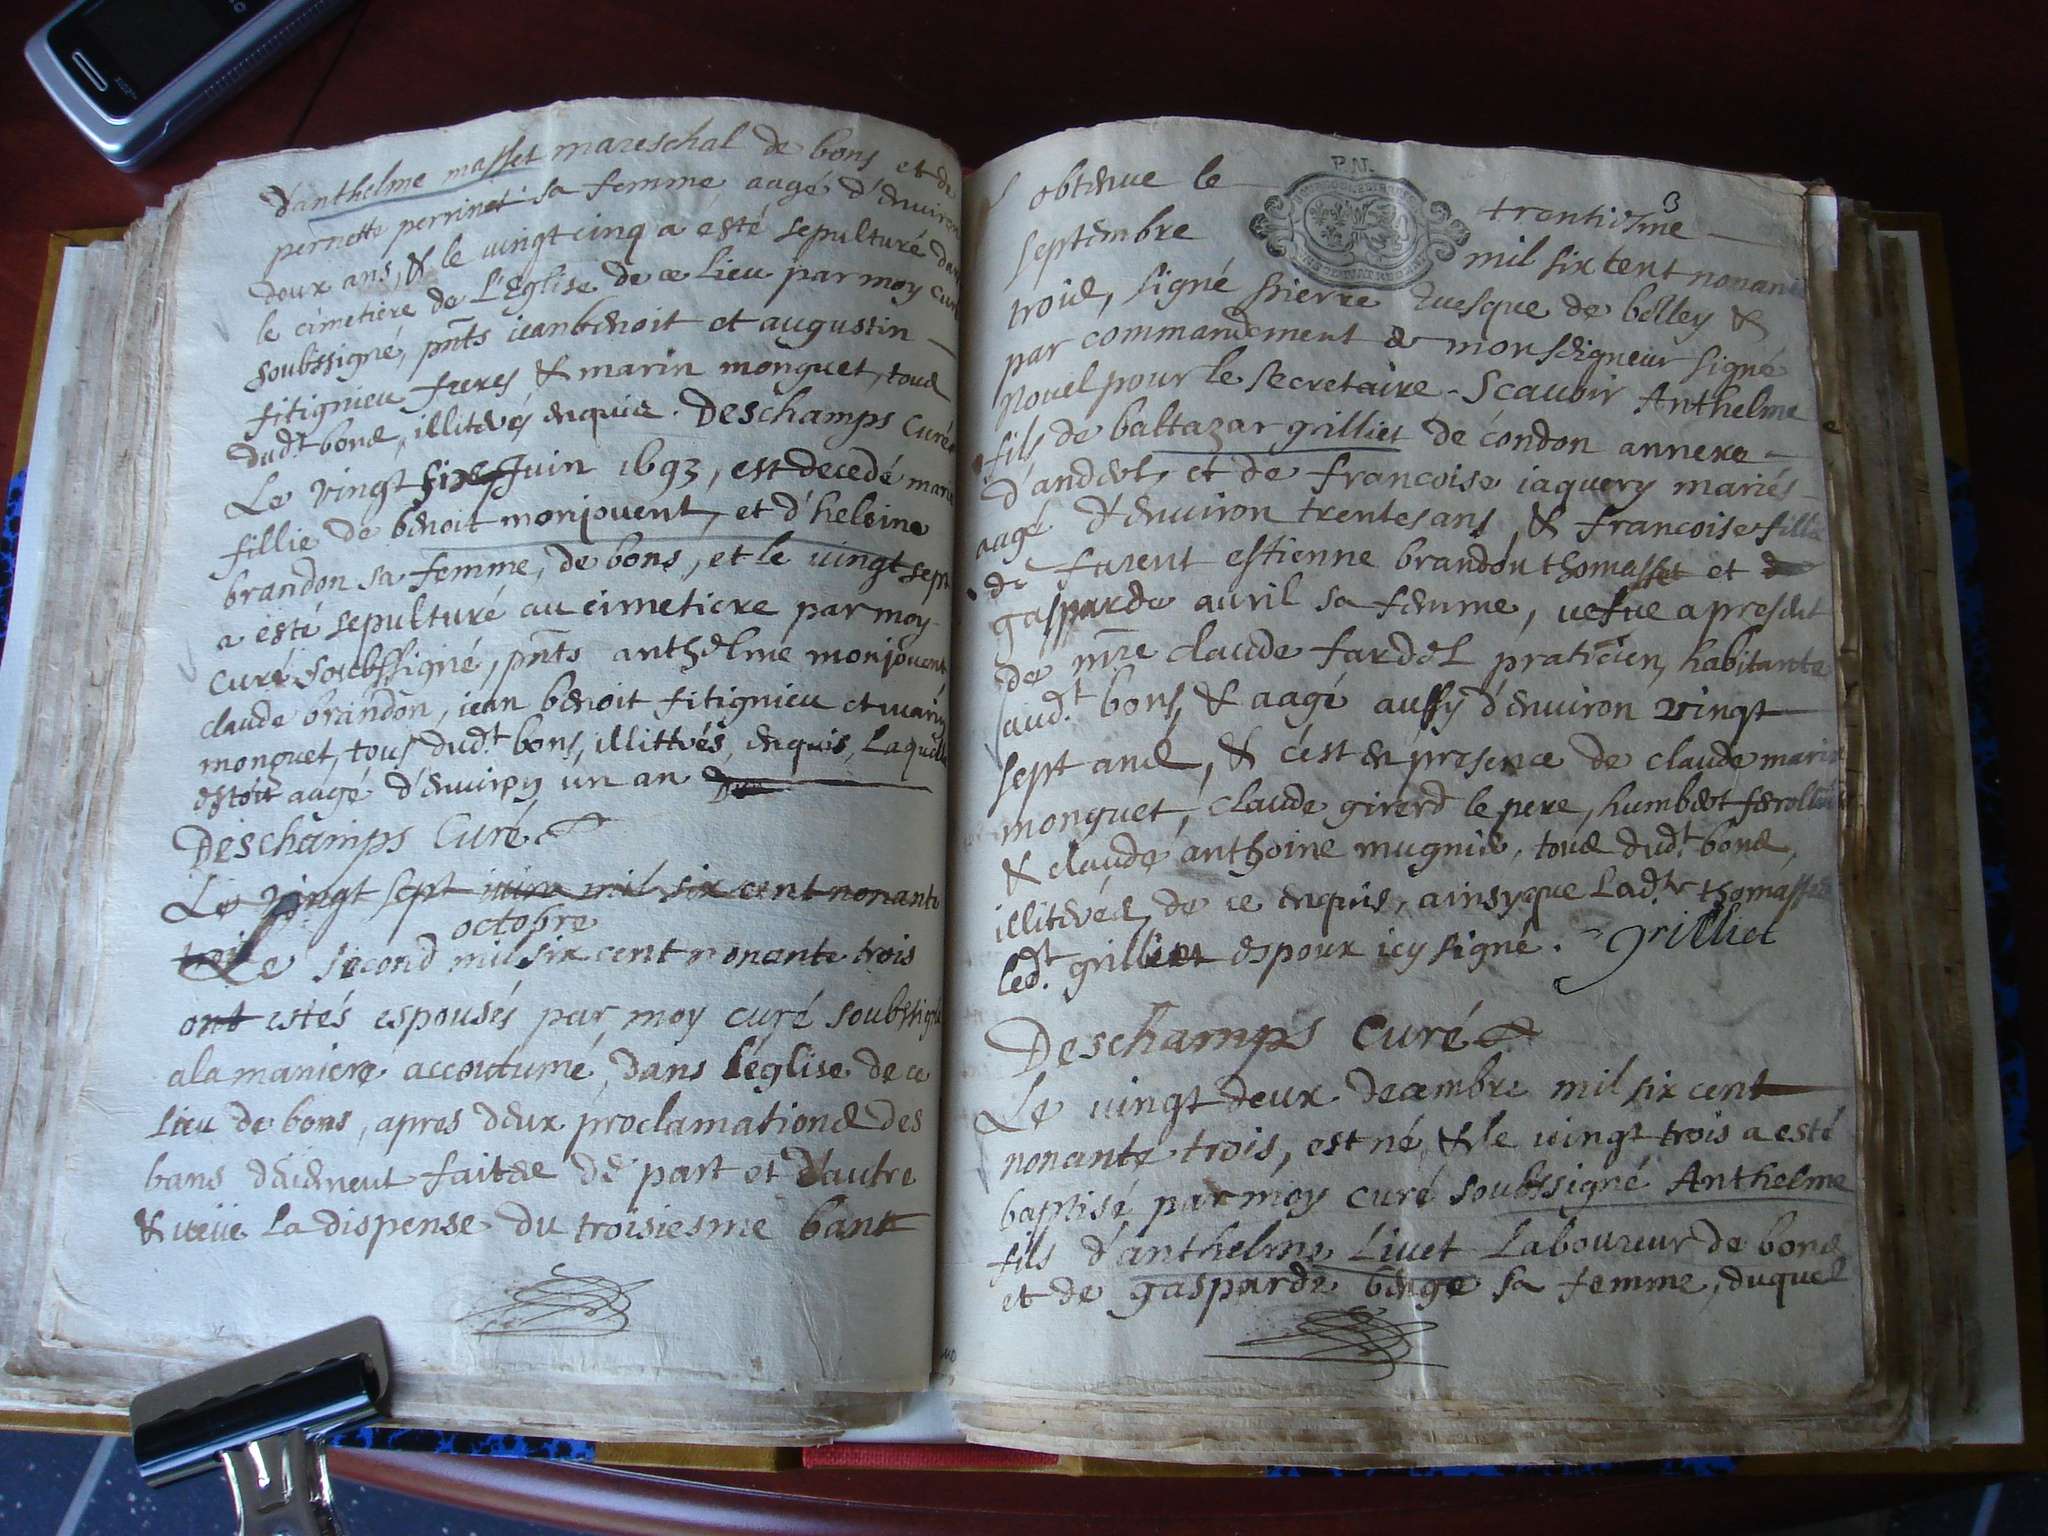 d'anthelme masset mareschal de bons et de
pernette perrinet sa femme aagé d'environ
deux ans, & le vingtcinq a ésté sepulturé dans
le cimetiere de L'Eglise de ce Lieu par moy curé
soubssigné, pñts jeanbenoit et augustin
fitignieu freres & marin monguet, tous
dud.t bons, illiterés enquis. Deschamps Curé
Le vingt six Juin 1693, est decedé marie
fillie de benoit monjouvent, et d'heleine
brandon sa femme, de bons, et le vingt sept
a esté sepulturé au cimetiere par moy
curé soubssigné, pñts anthelme monjouvent
claude brandon, jean benoit fitignieu et marin
monguet, tous dud.t bons, illittrés, enquis, Laquelle
estoit aagé d'enuiron un an
Deschamps Curé
Le vingt sept juin mil six cent nonante
trois
octobre
Le second mil six cent nonante trois
ont estés espousés par moy curé soubssigné
a la maniere accoutumé, dans l'église de ce
Lieu de bons, apres deux proclamations des
bans deüement faites de part et d'autre
& veüe La dispense du troisiesme bant
P.N.
3
obtenue le trentiesme
septembre mil six cent nonante
trois, signé Pierre euesque de belley &
par commandement de monseigneur signé
Nouel pour le secretaire. Scauoir Anthelme
fils de baltazar grilliet de condon annexe
d'andert, et de francoise jaquery mariés
aagé d'enuiron trentesans, & francoise fille
de furent estienne brandon thomasset et de
gasparde auril sa femme, vefue apresdit
de mre claude fardel praticien, habitante
aud.t bons, & aagé aussy d'enuiron vingt
sept ans, & c'est en presence de claude marin
monguet, claude girerd le pere, humbert
& claude anthoine mugnie, tous dud.t bons,
illiterés de ce enquis, ainsyque Lad.te thomasset
led.t grilliet espoux icy signé. grilliet
Deschamps Curé
Le vingt deux decembre mil six cent
nonante trois, est né, & le vingt trois a esté
baptisé par moy curé soubssigné Anthelme
fils d'anthelme Liuet Laboureur de bons
et de gasparde benge sa femme, duquel